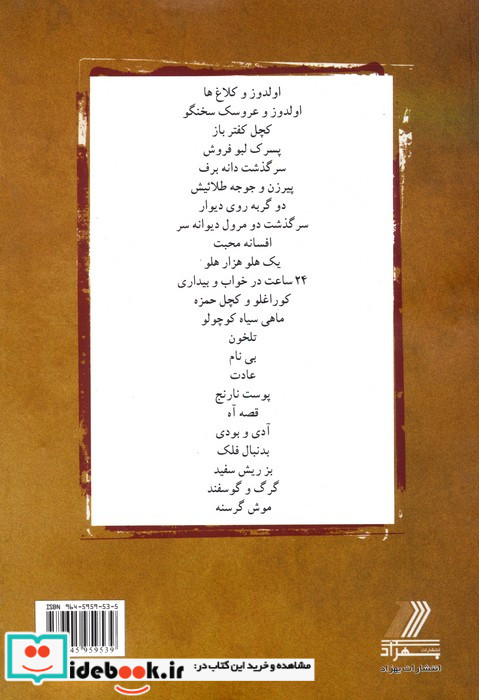 اولدوز و کلاغ ها
اولدوز و عروسک سخنگو
کچل کفتر باز
پسرک لبو فروش
سرگذشت دانه برف
پیرزن و جوجه طلائیش
دو گربه روی دیوار
سرگذشت دو مرول دیوانه سر
افسانه محبت
یک هلو هزار هلو
۲۴ ساعت در خواب و بیداری
کوراغلو و کچل حمزه
ماهی سیاه کوچولو
تلخون
بی نام
عادت
پوست نارنج
قصه آه
آدی و بودی
بدنبال فلک
بز ریش سفید
گرگ و گوسفند
موش گرسنه
ISBN 964-5959-53-5
45959539
انتشارات
بهزاد
انتشارات بهزاد
مشاهده و خرید این کتاب در:
idebook.ir